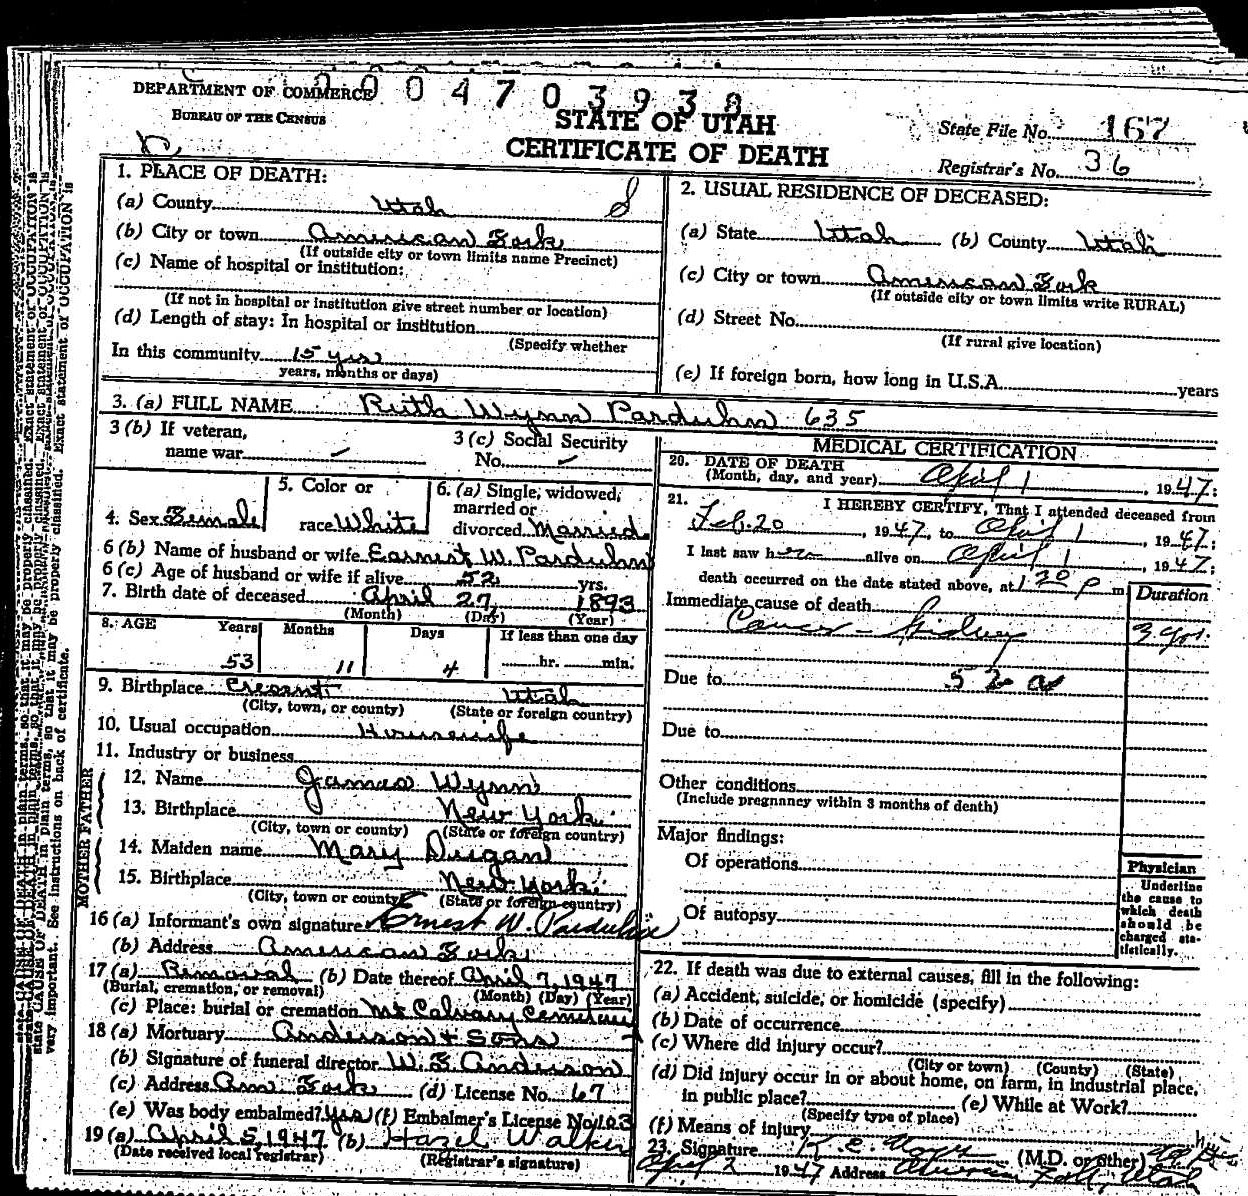 DEPARTMENT OF COMMERCE
BUREAU OF THE CENSUS
004703938
STATE OF UTAH
CERTIFICATE OF DEATH
State File No. 167
Registrar's No. 36
1. PLACE OF DEATH:
(a) County Utah
(b) City or town American Fork
(If outside city or town limits name Precinct)
(c) Name of hospital or institution:
(If not in hospital or institution give street number or location)
(d) Length of stay: In hospital or institution
(Specify whether
In this community 15 yrs
years, months or days)
2. USUAL RESIDENCE OF DECEASED:
(a) State Utah (b) County Utah
(c) City or town American Fork
(If outside city or town limits write RURAL)
(d) Street No.
(If rural give location)
(e) If foreign born, how long in U.S.A. years
3. (a) FULL NAME Ruth Wynn Parduhn 635
3 (b) If veteran,
name war –
3 (c) Social Security
No. –
4. Sex Female
5. Color or
race White
6. (a) Single, widowed,
married or
divorced Married
6 (b) Name of husband or wife Earnest W. Parduhn
6 (c) Age of husband or wife if alive 52 yrs.
7. Birth date of deceased April 27, 1893
(Month) (Day) (Year)
8. AGE Years Months Days If less than one day
53 11 4 hr. min.
9. Birthplace Cresent Utah
(City, town, or county) (State or foreign country)
10. Usual occupation Housewife
11. Industry or business
FATHER
12. Name James Wynn
13. Birthplace New York
(City, town or county) (State or foreign country)
MOTHER
14. Maiden name Mary Dugan
15. Birthplace New York
(City, town or county) (State or foreign country)
16 (a) Informant's own signature Ernest W. Parduhn
(b) Address American Fork
17 (a) Removal (b) Date thereof April 7, 1947
(Burial, cremation, or removal) (Month) (Day) (Year)
(c) Place: burial or cremation Mt Calvary Cemetery
18 (a) Mortuary Anderson & Sons
(b) Signature of funeral director W. E. Anderson
(c) Address Am. Fork (d) License No. 67
(e) Was body embalmed? Yes (f) Embalmer's License No. 103
19 (a) April 5, 1947 (b) Hazel Walker
(Date received local registrar) (Registrar's signature)
MEDICAL CERTIFICATION
20. DATE OF DEATH
(Month, day, and year) April 1, 1947;
21. I HEREBY CERTIFY, That I attended deceased from
Feb. 20, 1947, to April 1, 1947;
I last saw her alive on April 1, 1947;
death occurred on the date stated above, at 1 30 p m
Duration
Immediate cause of death
Cancer – Kidney 3 yrs.
Due to 52 a
Due to
Other conditions
(Include pregnancy within 3 months of death)
Major findings:
Of operations
Of autopsy
Physician
Underline
the cause to
which death
should be
charged sta-
tistically.
22. If death was due to external causes, fill in the following:
(a) Accident, suicide, or homicide (specify)
(b) Date of occurrence
(c) Where did injury occur?
(City or town) (County) (State)
(d) Did injury occur in or about home, on farm, in industrial place,
in public place? (e) While at Work?
(Specify type of place)
(f) Means of injury
23. Signature (M.D. or other)
April 2 1947 Address American Fork, Utah
state CAUSE OF DEATH in plain terms, so that it may be properly classified. Exact statement of OCCUPATION is
very important. See instructions on back of certificate.